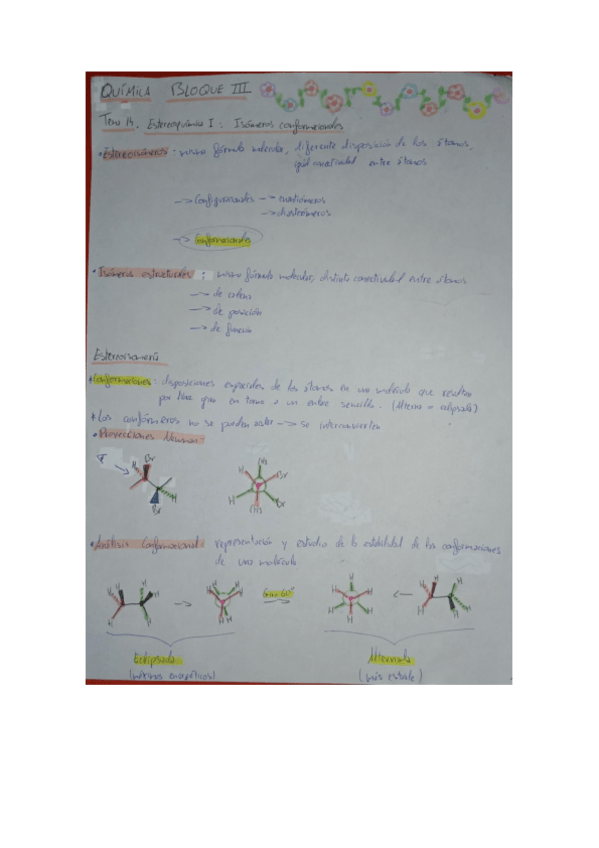 QUÍMICA BLOQUE III
Tema 14. Estereoquímica I: Isómeros conformacionales
• Estereoisómeros: misma fórmula molecular, diferente disposición de los átomos,
igual conectividad entre átomos
-> Configuracionales -> enantiómeros
-> diasterómeros
-> Conformacionales
• Isómeros estructurales: misma fórmula molecular, distinta conectividad entre átomos
-> de cadena
-> de posición
-> de función
Estereoisomería
* Conformaciones: disposiciones espaciales de los átomos en una molécula que resultan
por libre giro en torno a un enlace sencillo. (Alterna o eclipsada)
* Los confórmeros no se pueden aislar -> se interconvierten
• Proyecciones Newman
H Br
H
Br
H Br
H Br
• Análisis Conformacional: representación y estudio de la estabilidad de las conformaciones
de una molécula
H H H H H H
Giro 60º
Eclipsada Alternada
(máximos energéticos) (más estable)